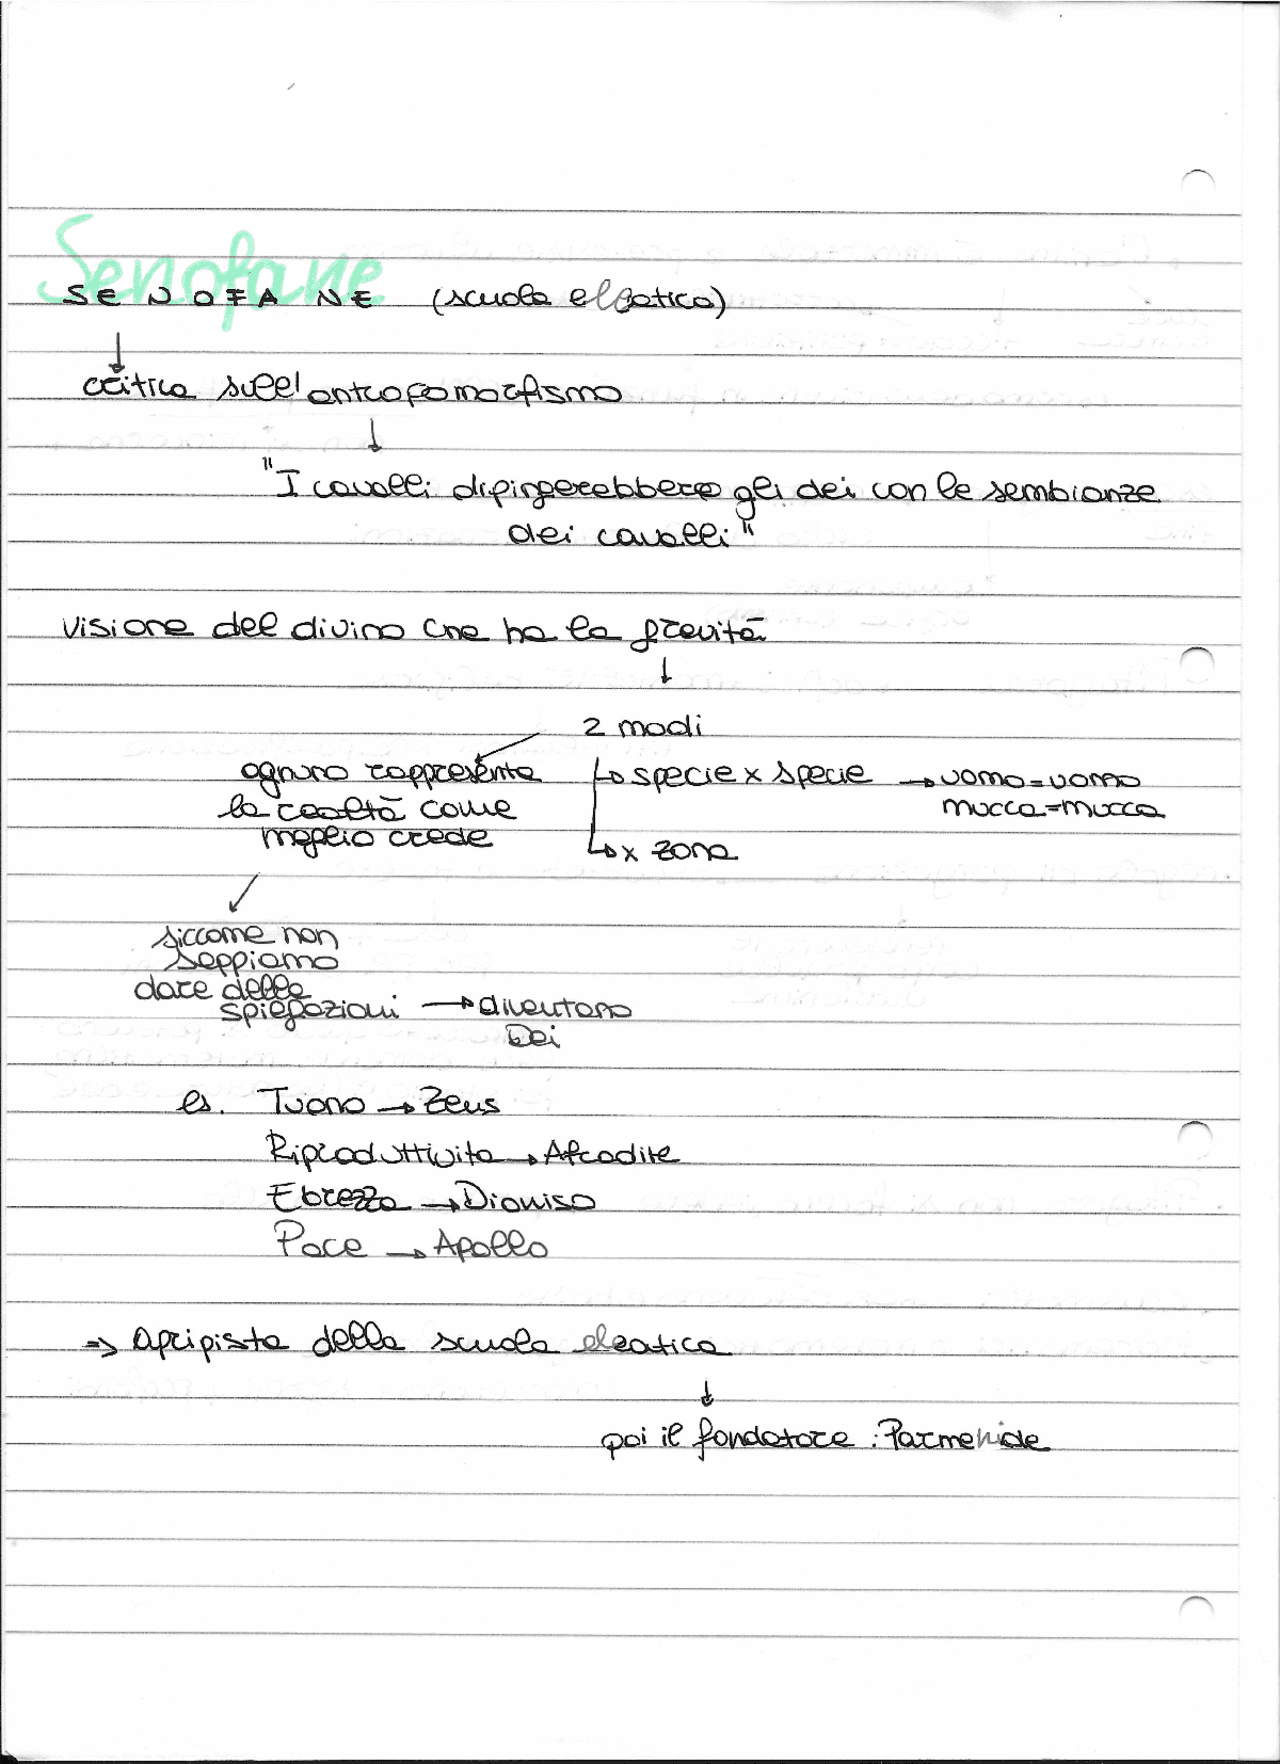 Senofane
SENOFANE (scuola eleatica)
↓
critica sull'antropomorfismo
↓
"I cavalli dipingerebbero gli dei con le sembianze
dei cavalli"
Visione del divino che ha la gravità
↓
2 modi
ognuno rappresenta
la realtà come
meglio crede
↳ specie x specie → uomo = uomo
mucca = mucca
↳ x zona
siccome non
sappiamo
dare delle
spiegazioni → diventano
Dei
es. Tuono → Zeus
Riproduttività → Afrodite
Ebrezza → Dioniso
Pace → Apollo
⇒ apripista della scuola eleatica
↓
poi il fondatore : Parmenide